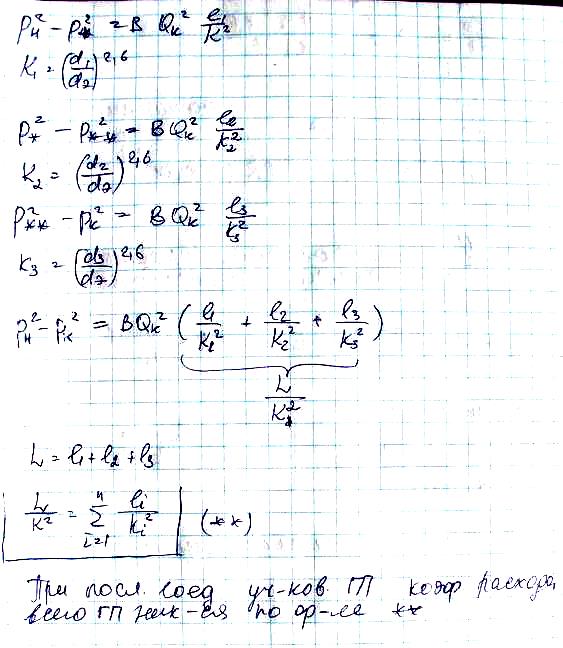 Pн² − P*² = B Qк² l₁/K²
K₁ = (d₁/dэ)^2,6
P*² − P**² = B Qк² l₂/K₂²
K₂ = (d₂/dэ)^2,6
P**² − Pк² = B Qк² l₃/K₃²
K₃ = (d₃/dэ)^2,6
Pн² − Pк² = B Qк² (l₁/K₁² + l₂/K₂² + l₃/K₃²)
L/K²
L = l₁ + l₂ + l₃
L/K² = Σ i=1 n li/Ki² (**)
При посл. соед уч-ков ГП коэф расхода,
всего ГП по ф-ле **